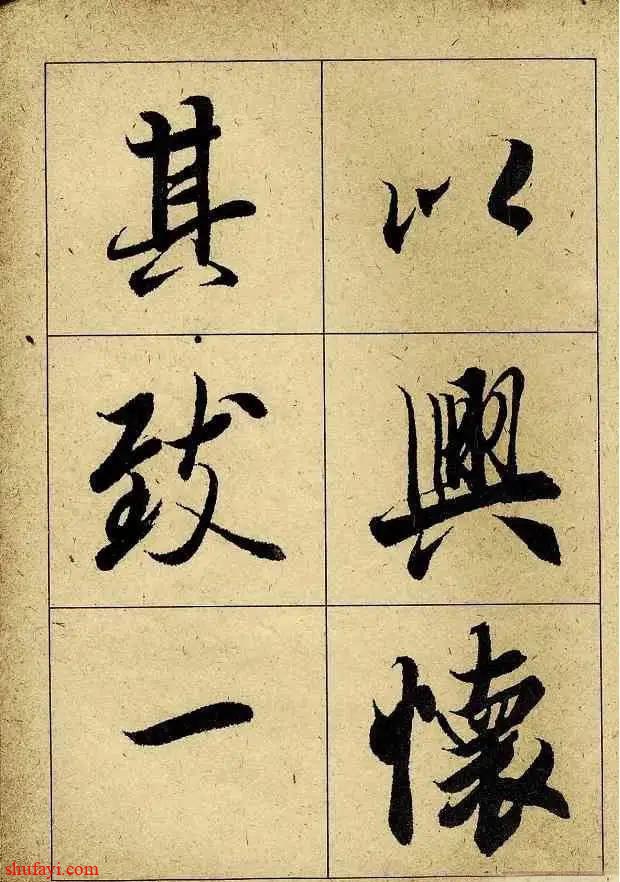 以興懷
其致一
shufayi.com